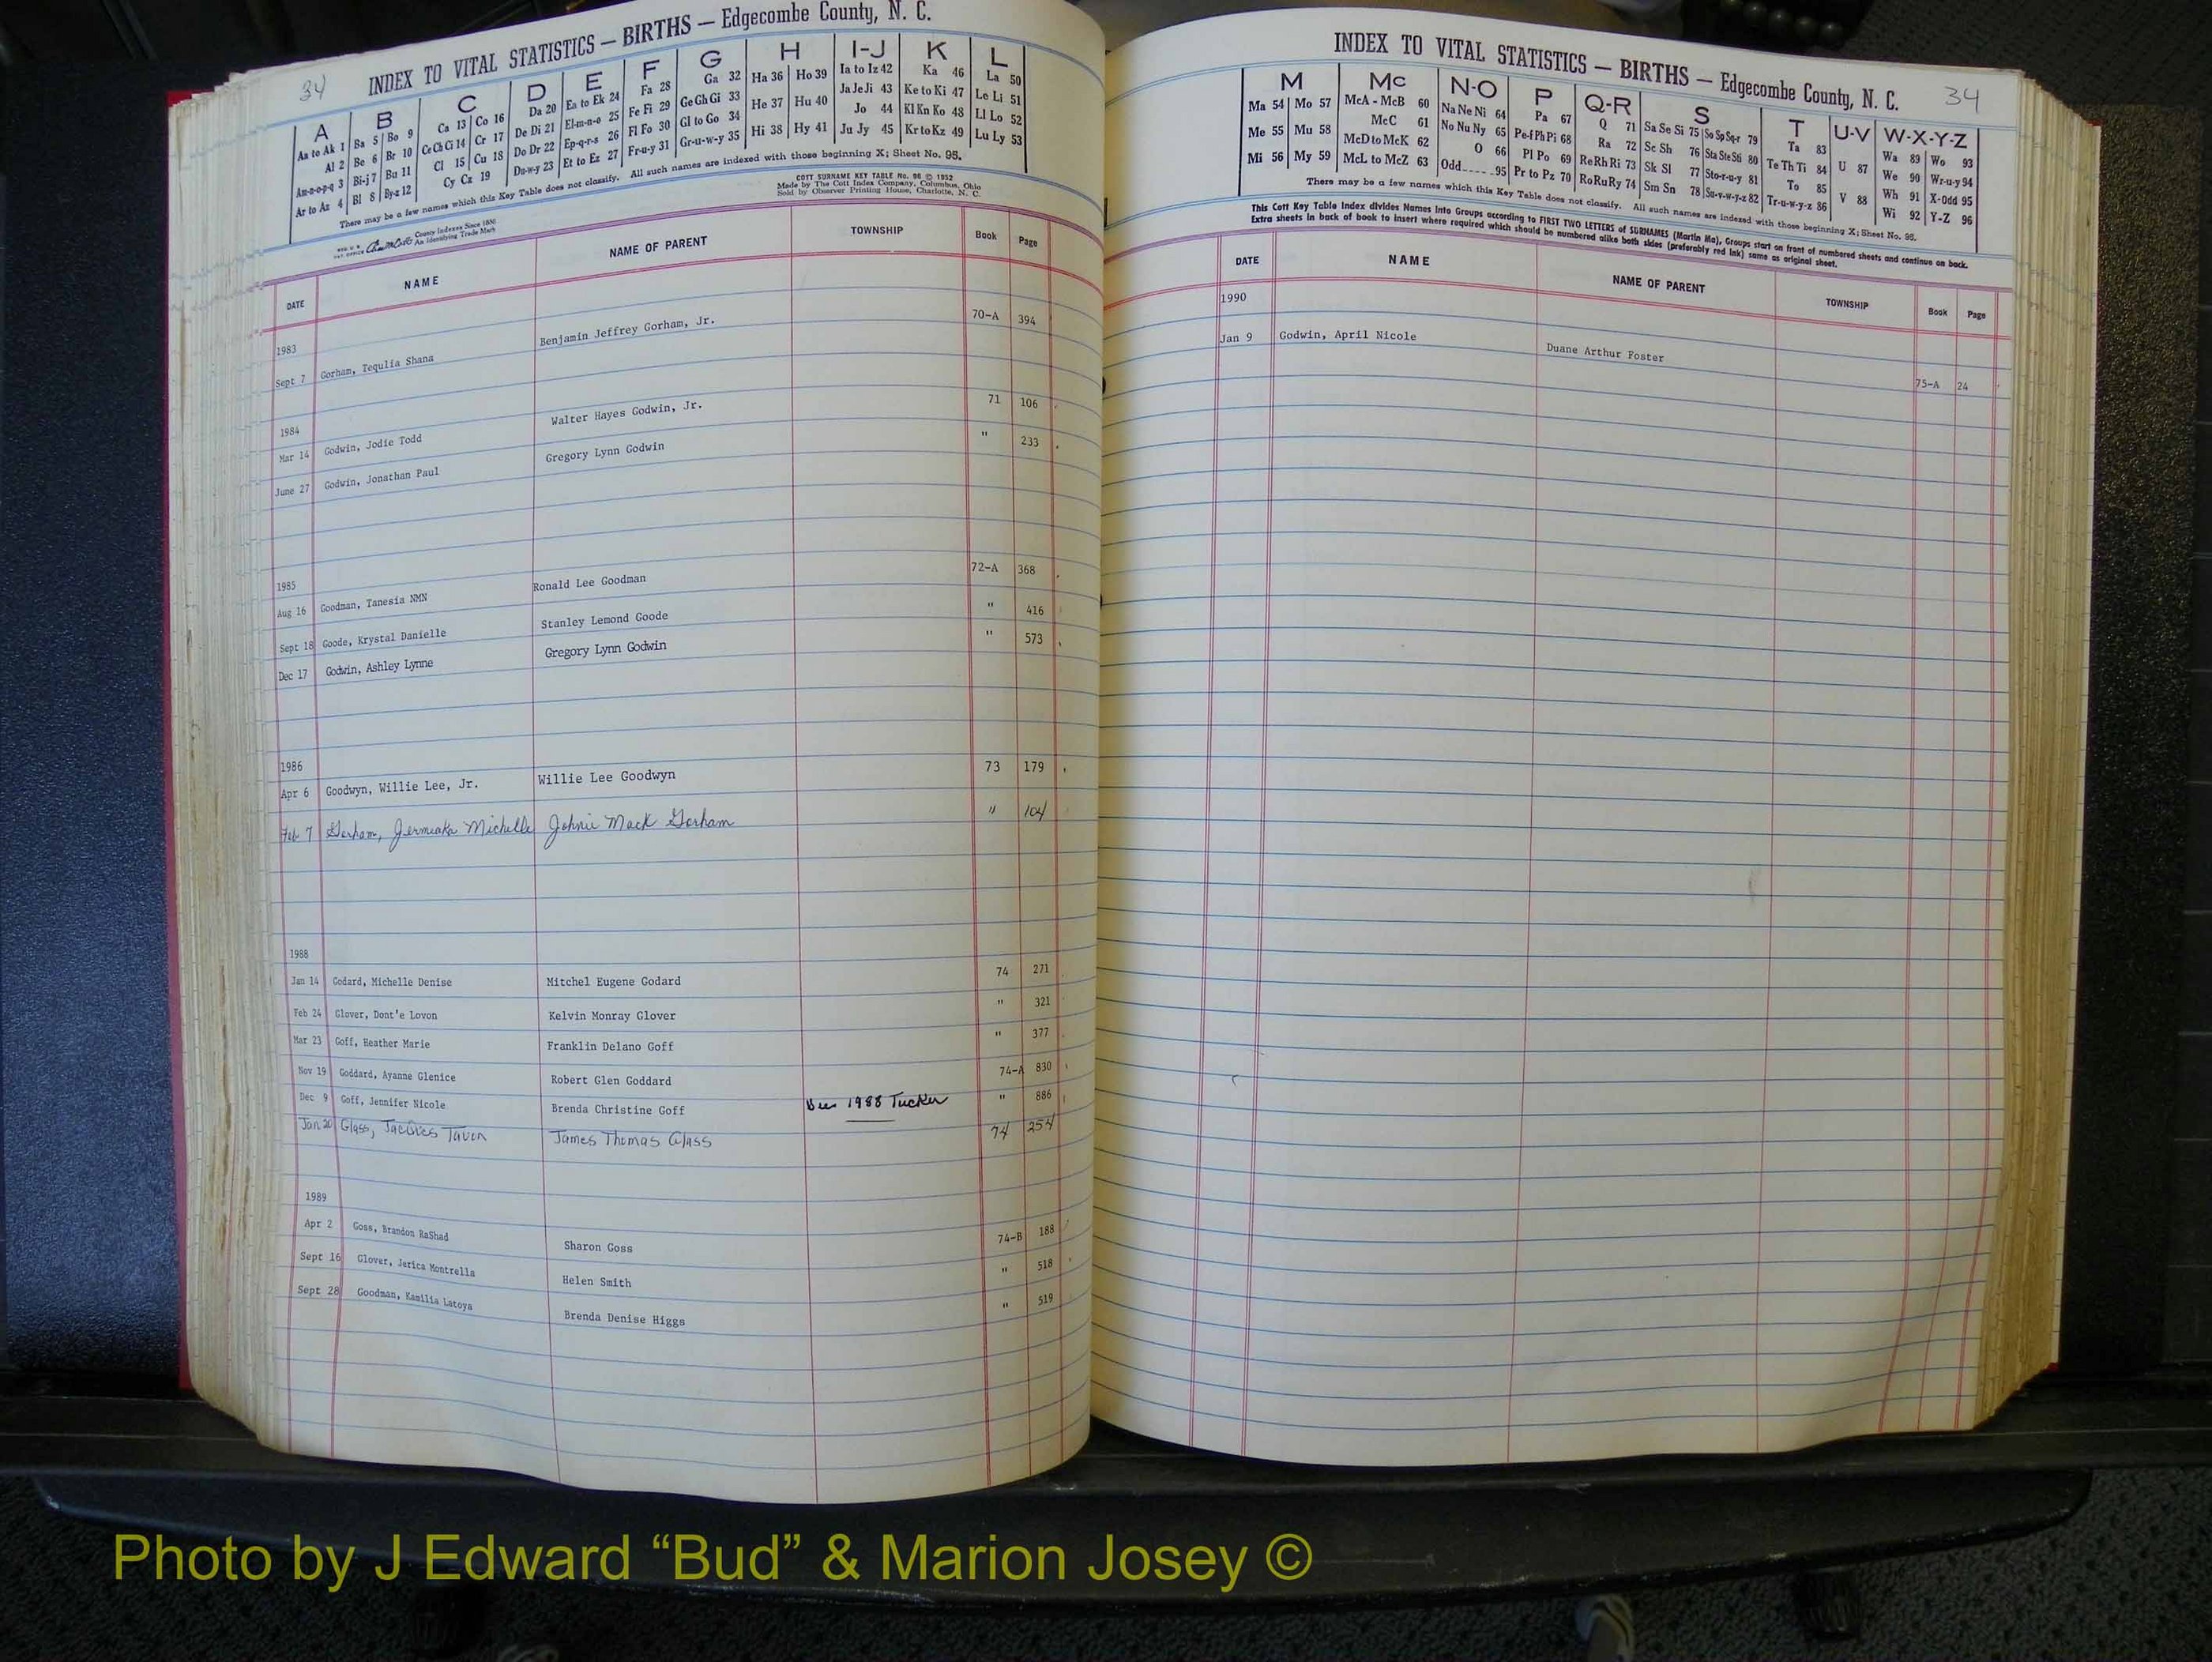 34
INDEX TO VITAL STATISTICS — BIRTHS — Edgecombe County, N. C.
A B C D E F G H I-J K L
Aa to Ak 1 Ba 5 Bo 9 Ca 13 Co 16 Da 20 Ea to Ek 24 Fa 28 Ga 32 Ha 36 Ho 39 Ia to Iz 42 Ka 46 La 50
Al 2 Be 6 Br 10 Ce Ch Ci 14 Cr 17 De Di 21 El-m-n-o 25 Fe Fi 29 Ge Gh Gi 33 He 37 Hu 40 Ja Je Ji 43 Ke to Ki 47 Le Li 51
Am-n-o-p-q 3 Bi-j 7 Bu 11 Cl 15 Cu 18 Do Dr 22 Ep-q-r-s 26 Fl Fo 30 Gl to Go 34 Hi 38 Hy 41 Jo 44 Kl Kn Ko 48 Ll Lo 52
Ar to Az 4 Bl 8 By-z 12 Cy Cz 19 Du-w-y 23 Et to Ez 27 Fr-u-y 31 Gr-u-w-y 35 Ju Jy 45 Kr to Kz 49 Lu Ly 53
There may be a few names which this Key Table does not classify. All such names are indexed with those beginning X; Sheet No. 95.
COTT SURNAME KEY TABLE No. 96 © 1952
Made by The Cott Index Company, Columbus, Ohio
Sold by Observer Printing House, Charlotte, N. C.
County Indexes Since 1888
An Identifying Trade Mark
DATE NAME NAME OF PARENT TOWNSHIP Book Page
1983
Sept 7 Gorham, Tequlia Shana Benjamin Jeffrey Gorham, Jr. 70-A 394
1984
Mar 14 Godwin, Jodie Todd Walter Hayes Godwin, Jr. 71 106
June 27 Godwin, Jonathan Paul Gregory Lynn Godwin " 233
1985
Aug 16 Goodman, Tanesia NMN Ronald Lee Goodman 72-A 368
Sept 18 Goode, Krystal Danielle Stanley Lemond Goode " 416
Dec 17 Godwin, Ashley Lynne Gregory Lynn Godwin " 573
1986
Apr 6 Goodwyn, Willie Lee, Jr. Willie Lee Goodwyn 73 179
Feb 7 Gorham, Jermiaka Michelle Johnie Mack Gorham " 104
1988
Jan 14 Godard, Michelle Denise Mitchel Eugene Godard 74 271
Feb 24 Glover, Dont'e Lovon Kelvin Monray Glover " 321
Mar 23 Goff, Heather Marie Franklin Delano Goff " 377
Nov 19 Goddard, Ayanne Glenice Robert Glen Goddard 74-A 830
Dec 9 Goff, Jennifer Nicole Brenda Christine Goff 1988 Tucker " 886
Jan 20 Glass, Tavon James Thomas Glass 74 254
1989
Apr 2 Goss, Brandon RaShad Sharon Goss 74-B 188
Sept 16 Glover, Jerica Montrella Helen Smith " 518
Sept 28 Goodman, Kamilia Latoya Brenda Denise Higgs " 519
INDEX TO VITAL STATISTICS — BIRTHS — Edgecombe County, N. C. 34
M Mc N-O P Q-R S T U-V W-X-Y-Z
Ma 54 Mo 57 McA - McB 60 Na Ne Ni 64 Pa 67 Q 71 Sa Se Si 75 So Sp Sq-r 79 Ta 83 U 87 Wa 89 Wo 93
Me 55 Mu 58 McC 61 No Nu Ny 65 Pe-f Ph Pi 68 Ra 72 Sc Sh 76 Sta Ste Sti 80 Te Th Ti 84 V 88 We 90 Wr-u-y 94
Mi 56 My 59 McD to McK 62 O 66 Pl Po 69 Re Rh Ri 73 Sk Sl 77 Sto-r-u-y 81 To 85 Wh 91 X-Odd 95
McL to McZ 63 Odd 95 Pr to Pz 70 Ro Ru Ry 74 Sm Sn 78 Su-v-w-y-z 82 Tr-u-w-y-z 86 Wi 92 Y-Z 96
There may be a few names which this Key Table does not classify. All such names are indexed with those beginning X; Sheet No. 95.
This Cott Key Table Index divides Names into Groups according to FIRST TWO LETTERS of SURNAMES (Martin Ma), Groups start on front of numbered sheets and continue on back.
Extra sheets in back of book to insert where required which should be numbered alike both sides (preferably red ink) same as original sheet.
DATE NAME NAME OF PARENT TOWNSHIP Book Page
1990
Jan 9 Godwin, April Nicole Duane Arthur Foster 75-A 24
Photo by J Edward “Bud” & Marion Josey ©